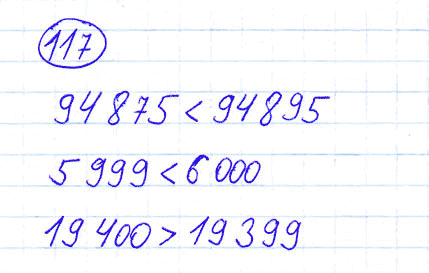 117
94 875 < 94 895
5 999 < 6 000
19 400 > 19 399